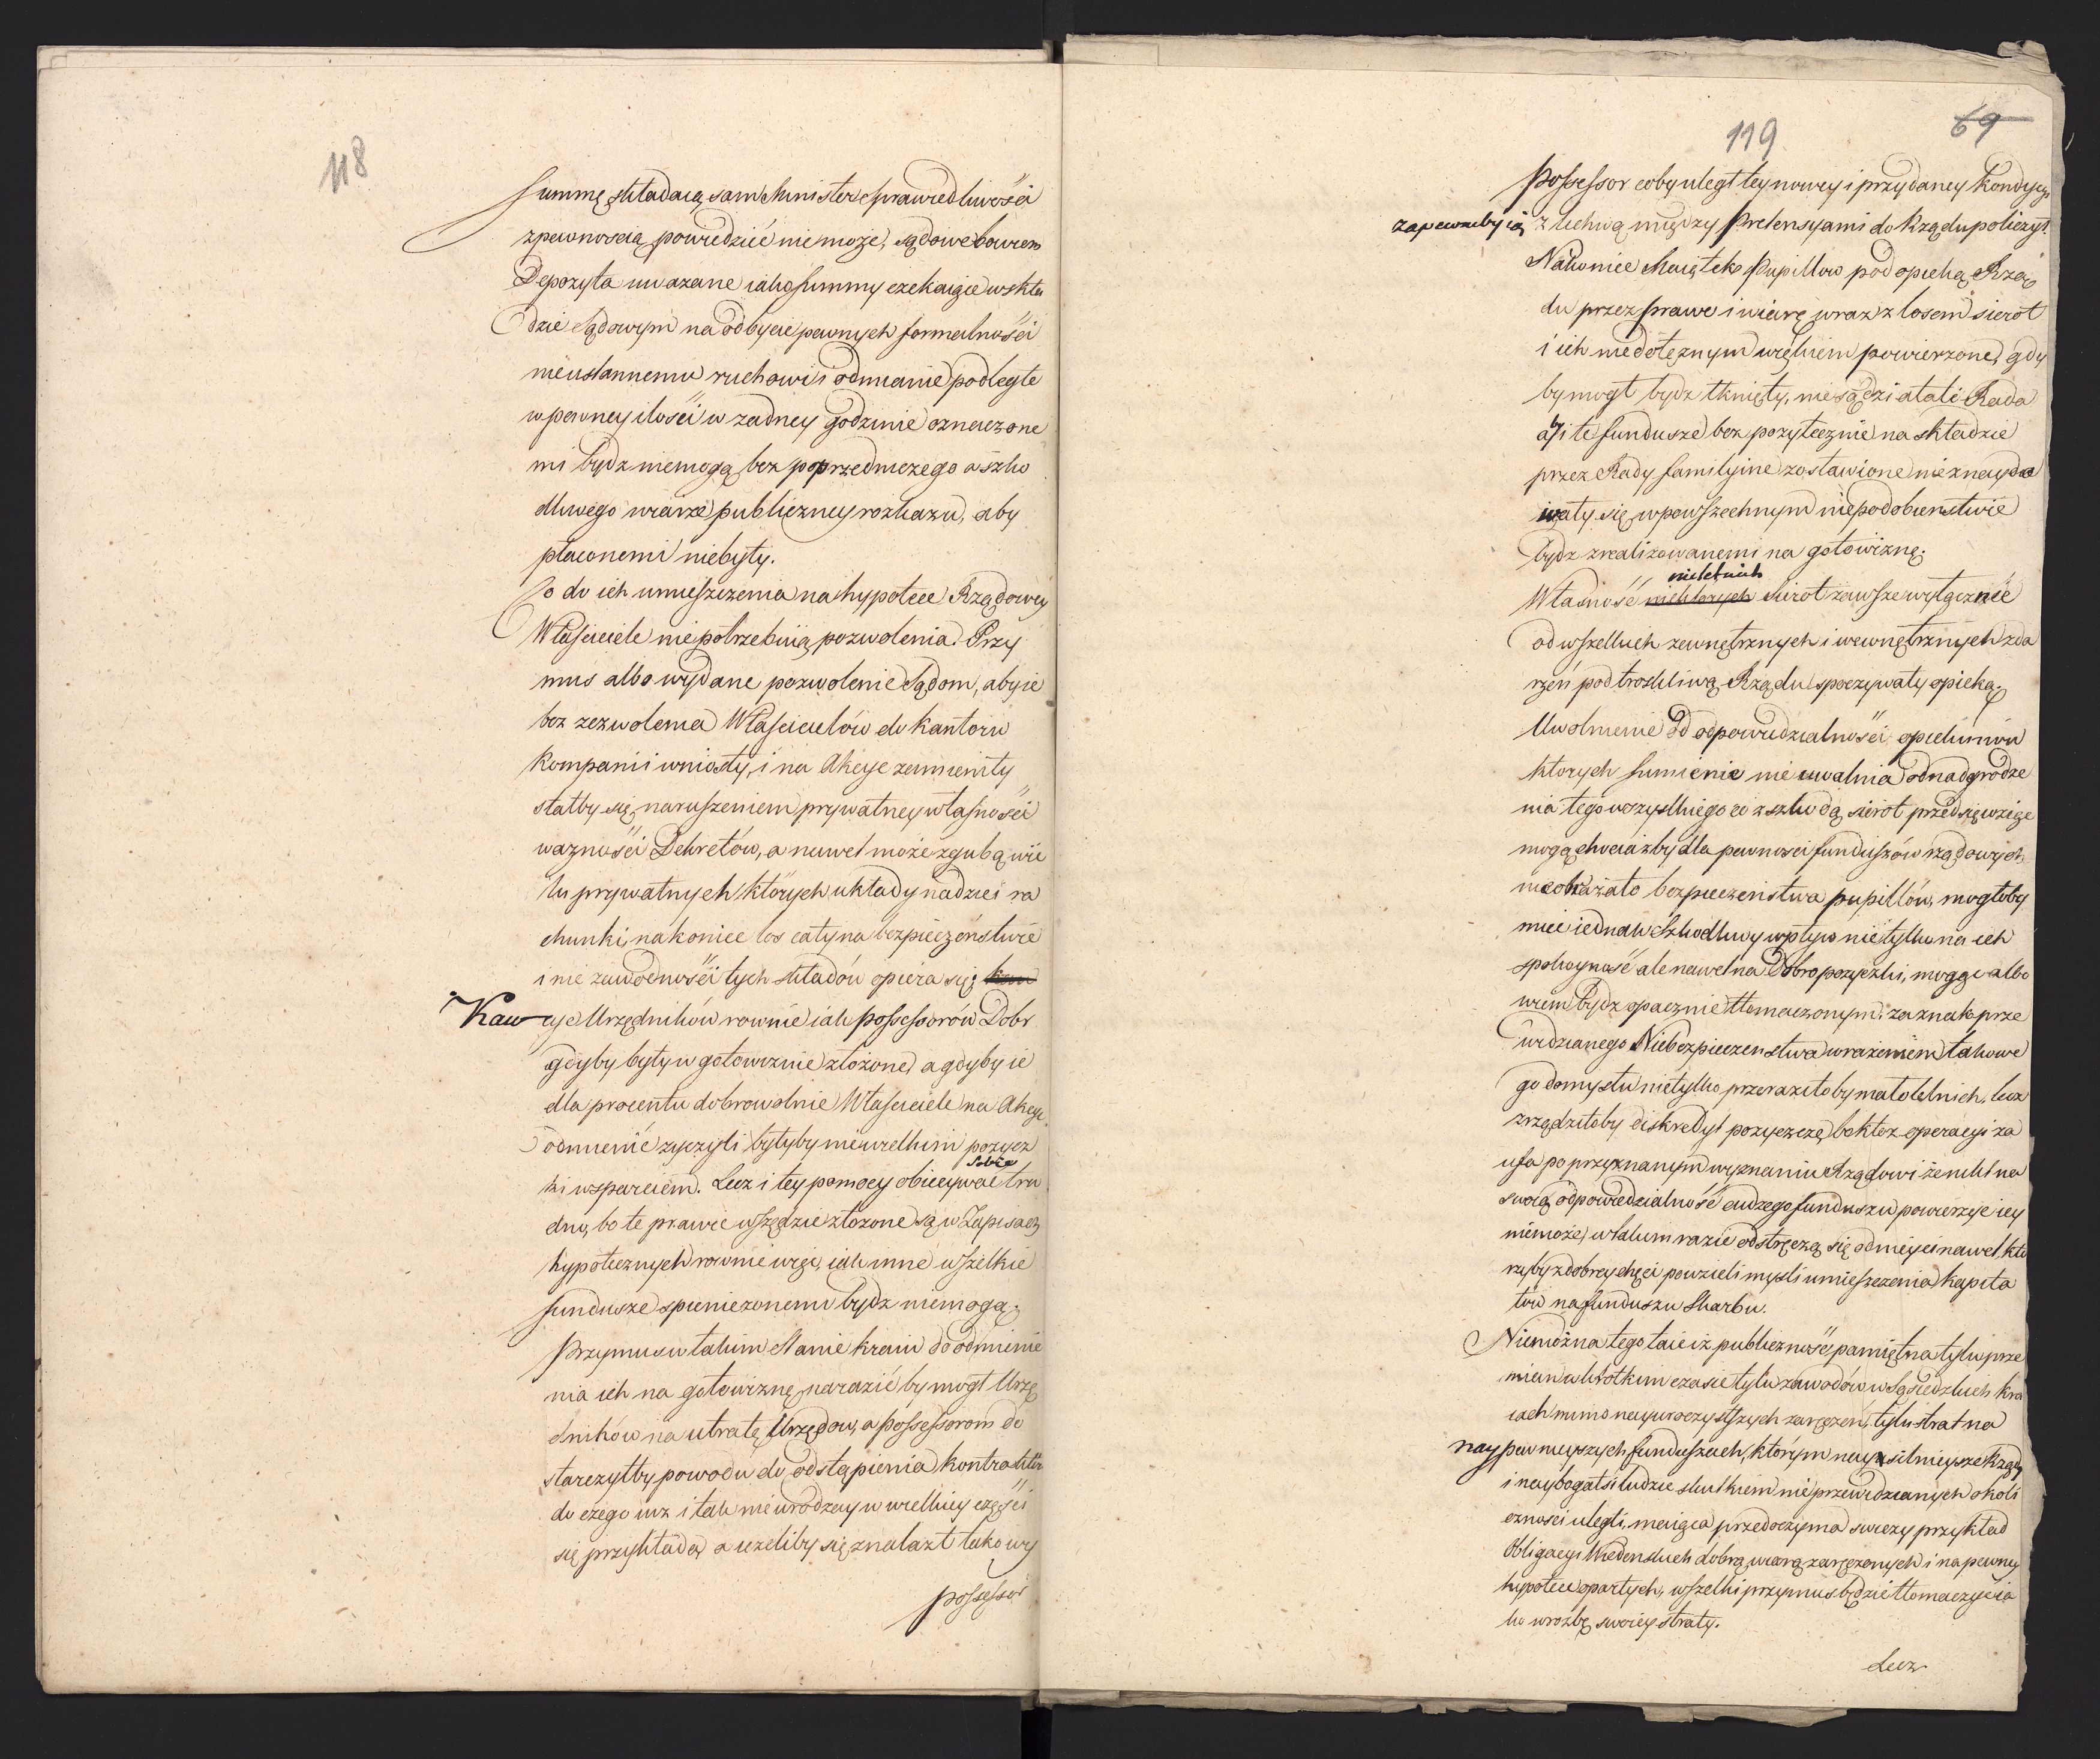 118
Summę składaią sam Minister Sprawiedliwości
z pewnoscią powiedzieć niemoże, sądowe bowiem
Depozyta uwazane iako Summy czekaiące w skła
dzie Sądowym na odbycie pewnych formalności
nieustannemu ruchowi i odmianie podległe
w pewney ilości w zadney godzinie oznaczone
mi bydz niemogą bez poprzedniczego a szko
dliwego wierze publiczney rozkazu, aby
płaconemi niebyły.
Co do ich umieszczenia na hypotece Rządowey
Właściciele nie potrzebuią pozwolenia. Przy
mus albo wydane pozwolenie Sądom, aby ie
bez zezwolenia Właścicielów do kantoru
Kompanii wniosły, i na Akcye zamieniły
stałby się naruszeniem prywatney własności
ważności Dekretów, a nawet może zgubą wie
lu prywatnych których układy nadzieie ra
chunki, nakoniec los cały na bezpieczeństwie
i nie zawodności tych składów opiera się;
Kaw cye Urzędników rownie iak Possessorów Dobr
gdyby były w gotowiznie złożone, a gdyby ie
dla procentu dobrowolnie Właściciele na Akcye
odmienić zyczyli byłyby niewielkim pozycz
ki wsparciem. Lecz i tey pomocy obiecywać sobie tru
dno, bo te prawie wszędzie złożone są w Zapisach
hypotecznych rownie więc, iak inne wszelkie
fundusze spieniezonemi bydz niemogą.
Przymus w takim Stanie kraiu do odmienie
nia ich na gotowiznę narazić by mogł Urzę
dników na utratę Urzędow, a Possessorom do
starczyłby powodu do odstąpienia kontraktów
do czego iuż i tak nieurodzay w wielkiey części
się przykłada, a iezeliby się znalazł takowy
Possessor
119
69
Possessor coby uległ tey nowey i przydaney Kondycyi
zapewneby ią z lichwą między Pretensyami do Rządu policzył.
Nakoniec Maiątek Pupillow pod opiekę Rzą
du przez prawo i wiarę wraz z losem sierot
i ich niedołęznym wiekiem powierzone, gdy
by mogł bydz tknięty, nie sądzi atoli Rada
ażi te fundusze bez pozytecznie na składzie
przez Rady familyine zostawione nie znaydo
wały się w powszechnym niepodobienstwie
bydz zrealizowanemi na gotowiznę.
Własność nieletnich Sierot zawsze wyłącznie
od wszelkich zewnętrznych i wewnętrznych zda
rzeń pod troskliwą Rządu spoczywały opieką.
Uwolnienie od odpowiedzialności opiekunów
ktorych sumienie nie uwalnia od nadgrodze
nia tego wszystkiego co z szkodą sierot przedsięwziąć
mogą chociażby dla pewnosci funduszów rządowych
nieobrażało bezpieczeństwa pupillów, mogłoby
mieć iednak szkodliwy wpływ nietylko na ich
spokoyność ale nawet na Dobro pozyczki, mogąc albo
wiem bydz opacznie tłomaczonym za znak prze
widzianego Niebezpieczenstwa wrażeniem takowe
go domysłu nietylko przeraziłoby małoletnich, lecz
zrządziłoby diskredyt pozyczce, bo ktoz operacyi za
ufa po przyznanym wyznaniu Rządowi że nikt na
swoię odpowiedzialność cudzego funduszu powierzyć iey
niemoże, w takim razie odstręczą się od niey ci nawet, któ
rzyby z dobrey chęci powzieli mysl umieszczenia kapita
łów na funduszu Skarbu.
Niemożna tego taić iż publiczność pamiętna tylu prze
mian w krótkim czasie tylu zawodów w Sąsiedzkich kra
iach mimo nayuroczystszych zaręczeń, tylu strat na
nay pewnieyszych funduszach, którym naysilnieysze Rządy
i naybogatsi ludzie skutkiem nieprzewidzianych okoli
cznosci ulegli, maiąca przed oczyma swiezy przykład
Obligacyi Wiedenskich dobrą wiarą zaręczonych i na pewney
hypotece opartych, wszelki przymus będzie tłomaczyć ia
ko wrozbę swoiey straty.
Lecz